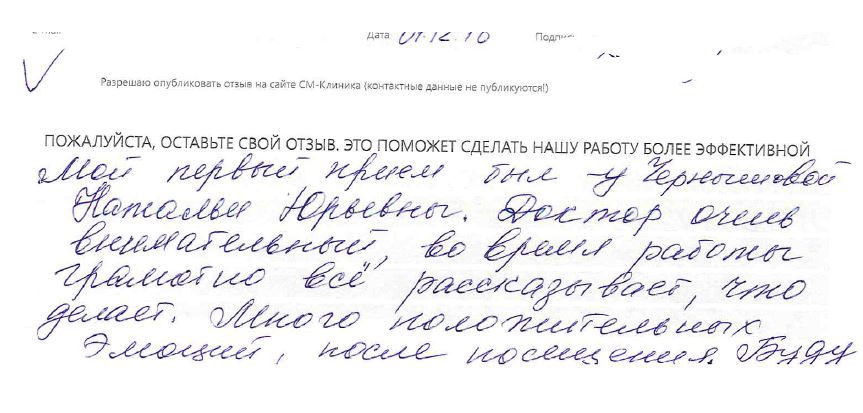 Дата 01.12.18
Разрешаю опубликовать отзыв на сайте СМ-Клиника (контактные данные не публикуются!)
ПОЖАЛУЙСТА, ОСТАВЬТЕ СВОЙ ОТЗЫВ. ЭТО ПОМОЖЕТ СДЕЛАТЬ НАШУ РАБОТУ БОЛЕЕ ЭФФЕКТИВНОЙ
Мой первый прием был у Чернышовой
Натальи Юрьевны. Доктор очень
внимательный, во время работы
грамотно всё рассказывает, что
делает. Много положительных
эмоций, после посещения. Буду